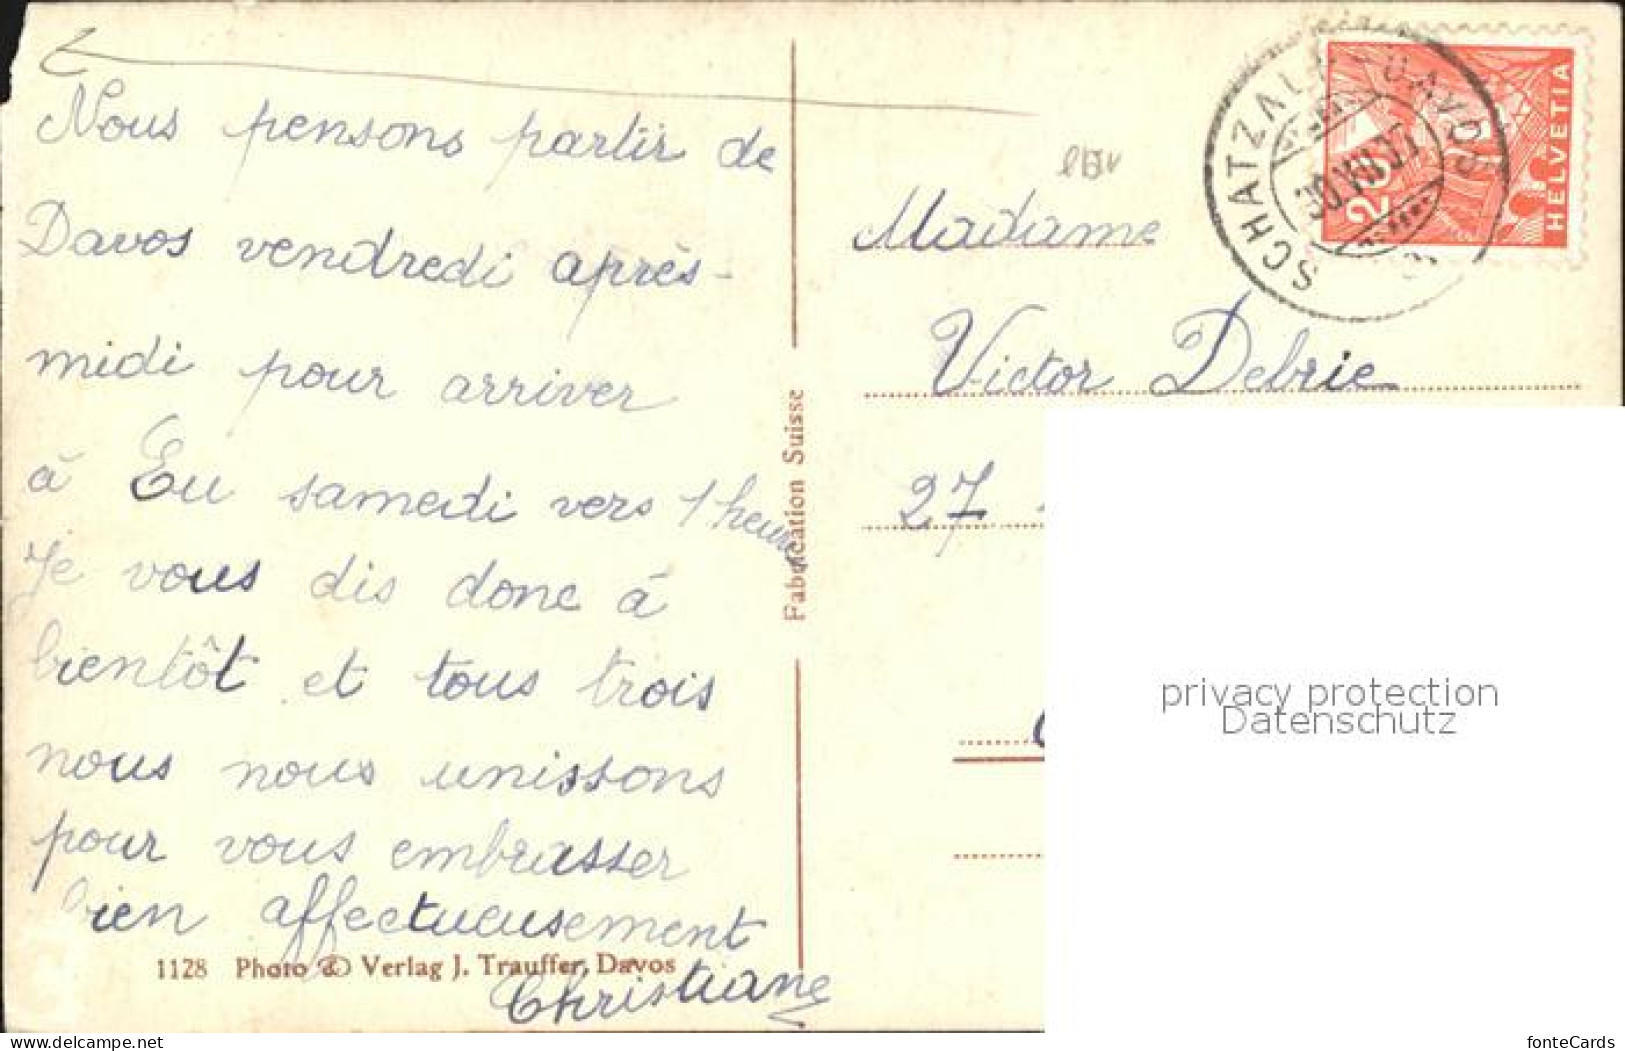 Nous pensons partir de
Davos vendredi après-
midi pour arriver
à Eu samedi vers 1 heure
Je vous dis donc à
bientôt et tous trois
nous nous unissons
pour vous embrasser
bien affectueusement
Christiane
1128 Photo & Verlag J. Trauffer, Davos
Fabrication Suisse
SCHATZALP DAVOS
20
HELVETIA
Madame
Victor Debrie
27
privacy protection
Datenschutz
delcampe.net
fonteCards